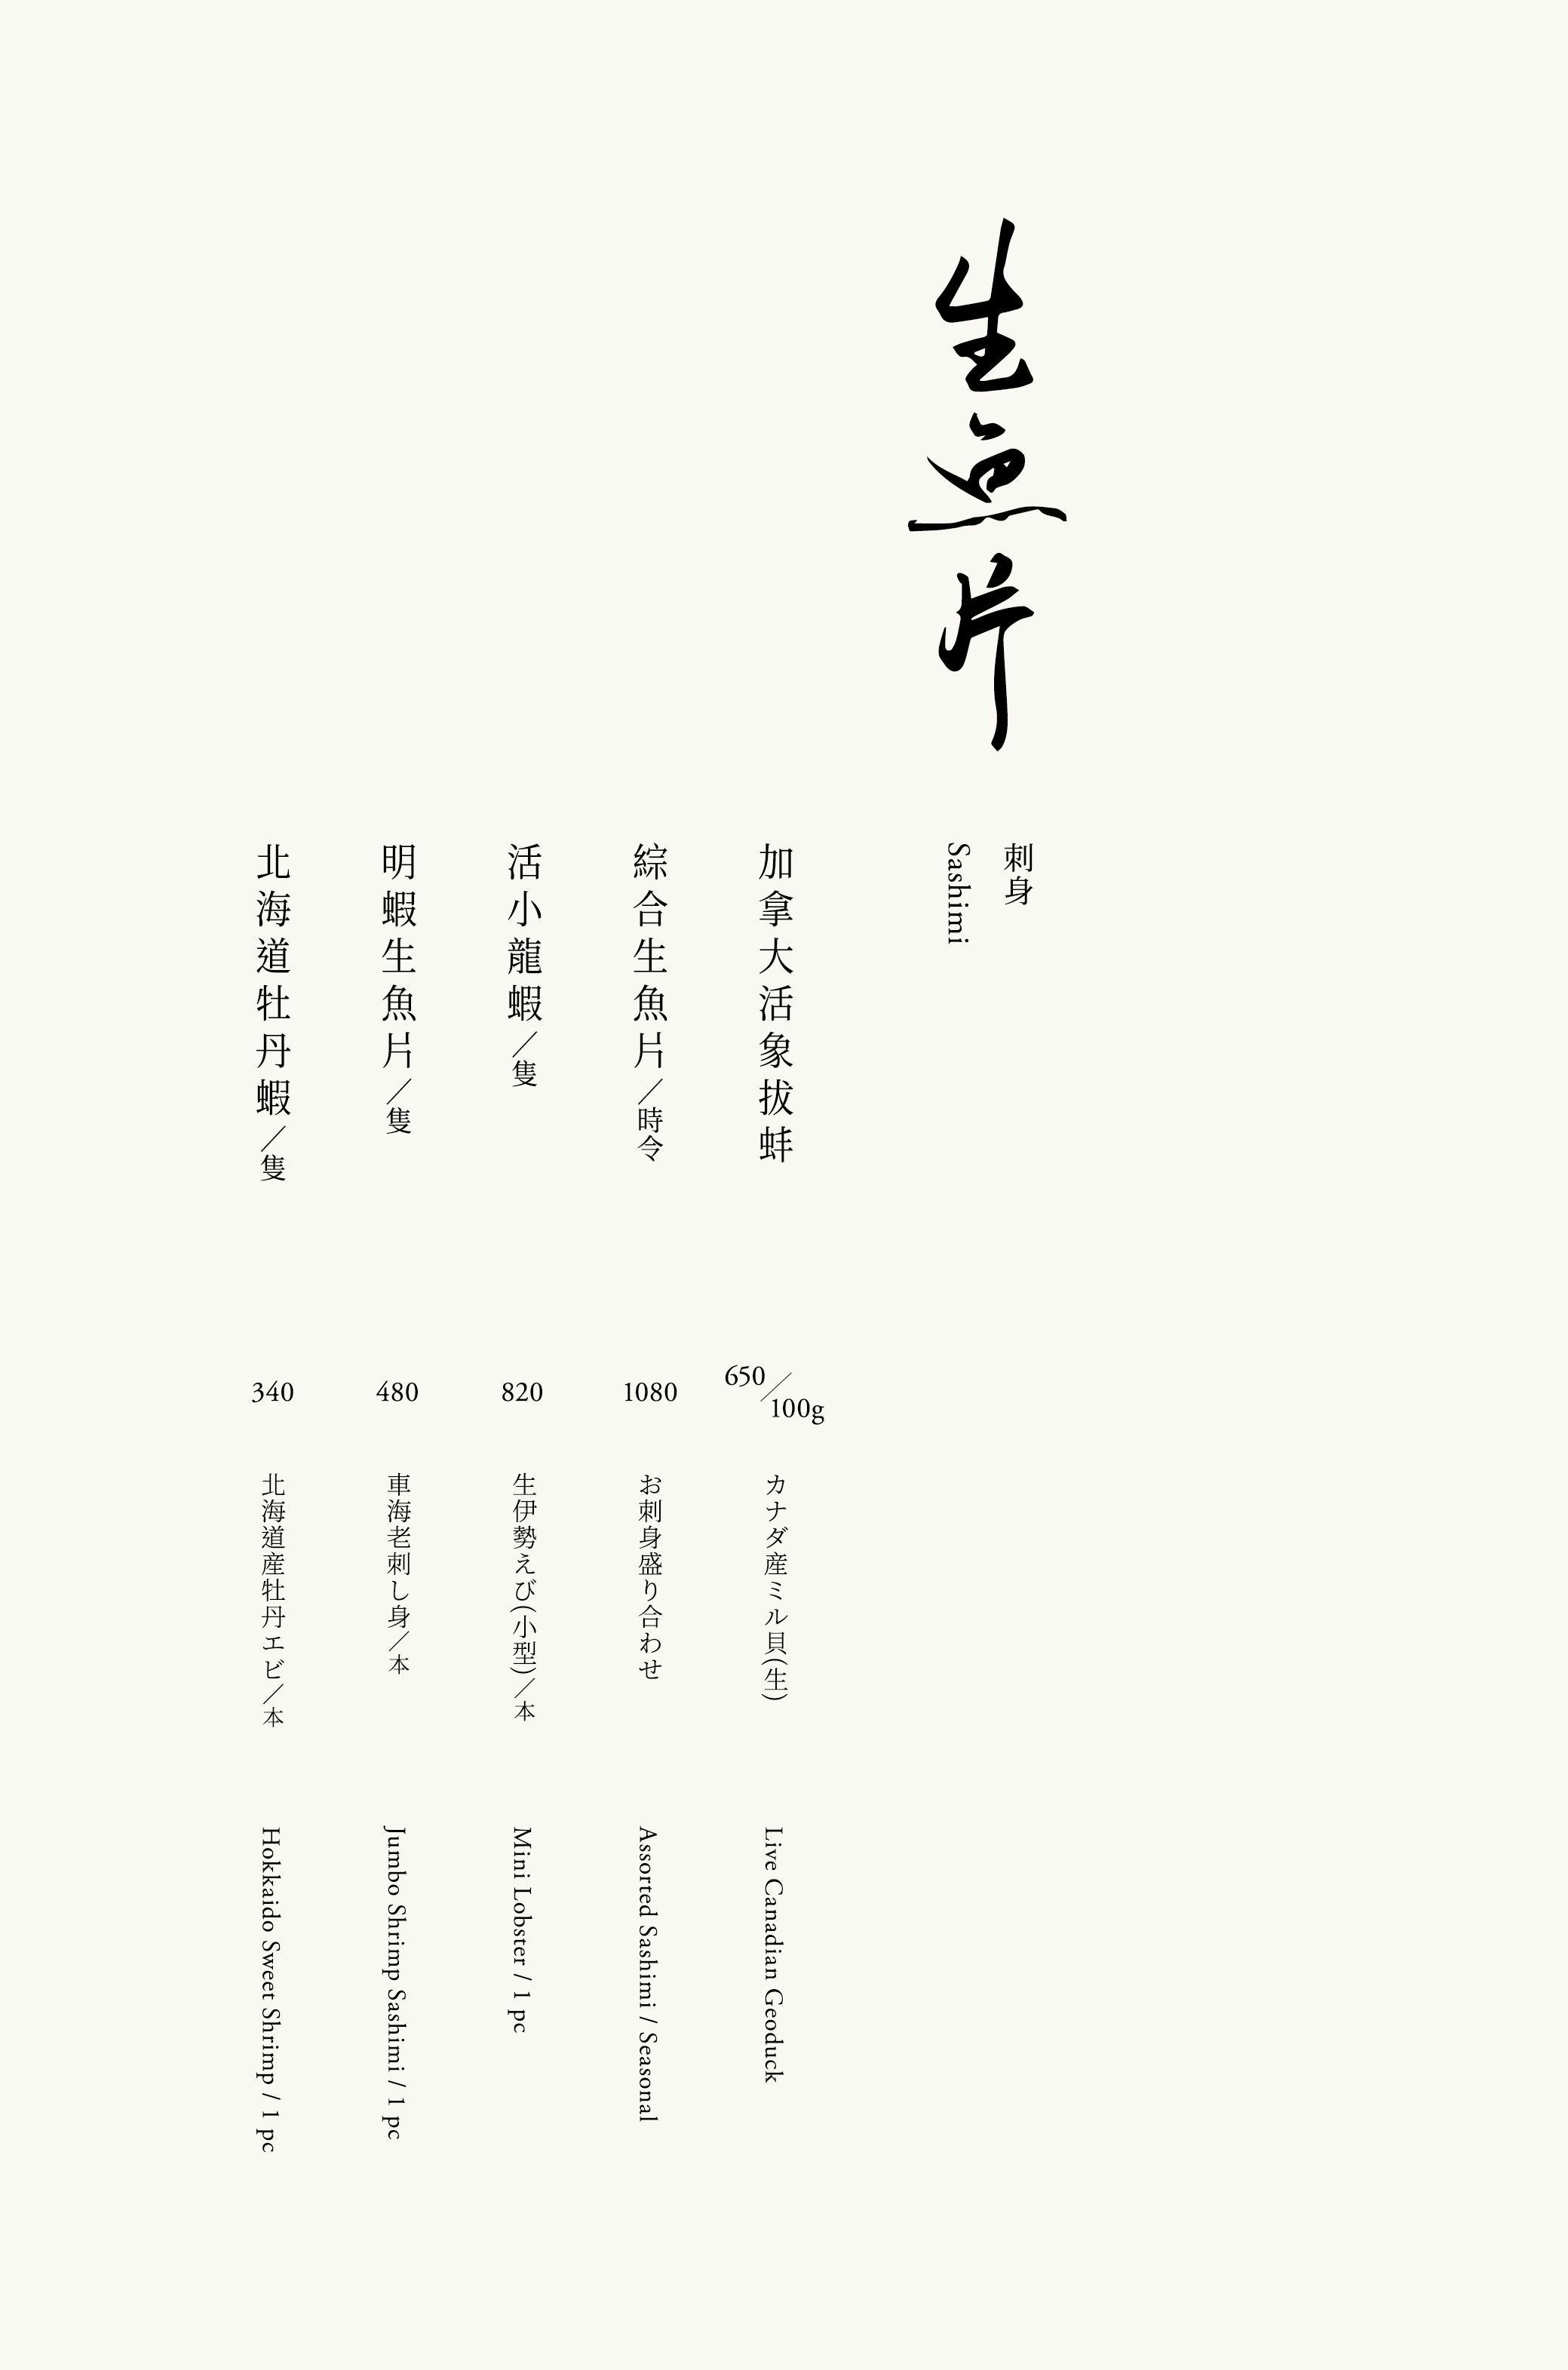 生魚片
刺身
Sashimi
加拿大活象拔蚌
650／100g
カナダ産ミル貝(生)
Live Canadian Geoduck
綜合生魚片／時令
1080
お刺身盛り合わせ
Assorted Sashimi / Seasonal
活小龍蝦／隻
820
生伊勢えび(小型)／本
Mini Lobster / 1 pc
明蝦生魚片／隻
480
車海老刺し身／本
Jumbo Shrimp Sashimi / 1 pc
北海道牡丹蝦／隻
340
北海道産牡丹エビ／本
Hokkaido Sweet Shrimp / 1 pc